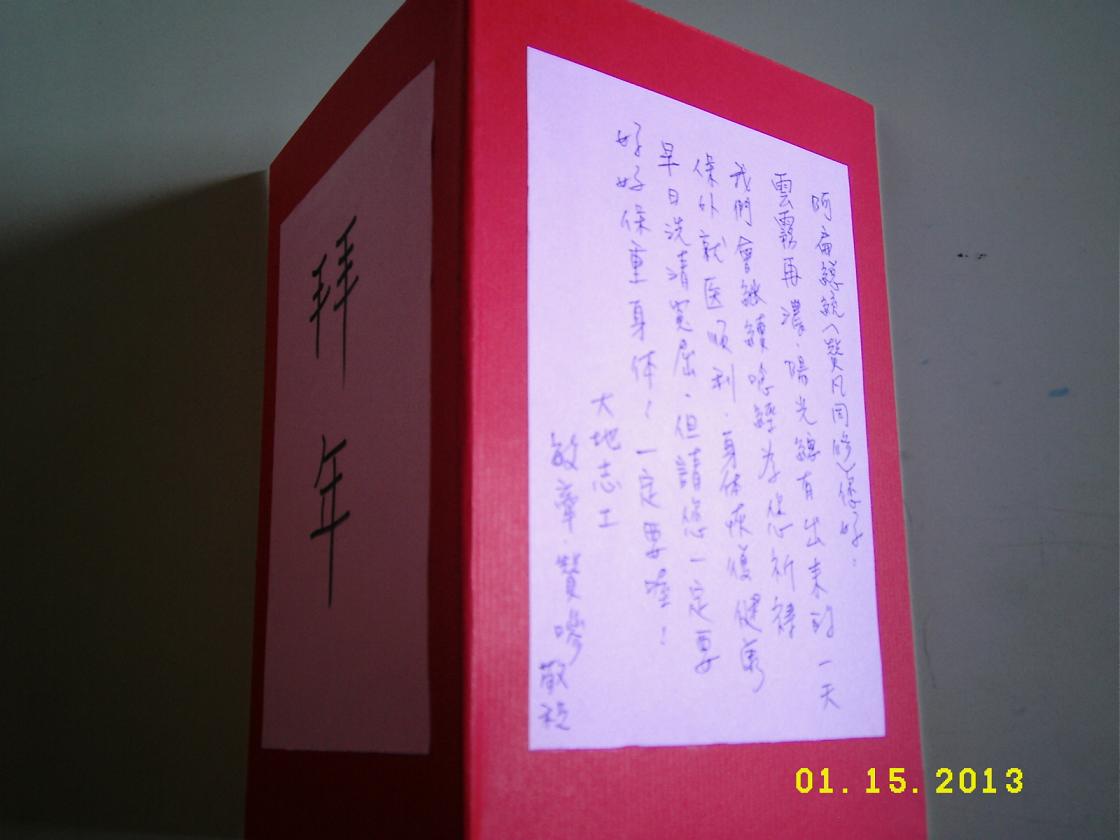 拜年
阿扁總統(贊凡同修)您好：
雲霧再濃，陽光總有出來的一天
我們會繼續唸經為您祈禱
保外就医順利，身体恢復健康
早日洗清冤屈，但請您一定要
好好保重身体！一定要喔！
大地志工
敬祝
01.15.2013